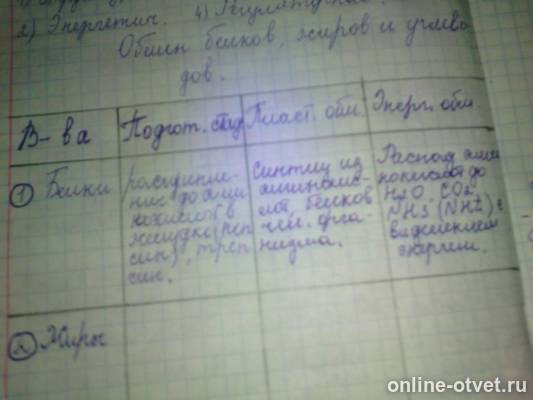 2) Энергетич. 4) Регулятурная.
Обмен белков, жиров и углево
дов.
В-ва Подгот. стад Пласт. обм. Энерг. обм.
1 Белки
расщепле-
ние до ами
нокислот в
желудке (пеп
син), трип
син.
синтез из
аминокис-
лот, белков
чел. орга-
низма.
Распад ами
нокислот до
H2O, CO2,
NH3 (NH2) с
выделением
энергии.
2 Жиры
online-otvet.ru